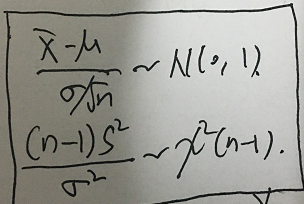 (X̄-μ)/(σ/√n) ~ N(0,1).
(n-1)S²/σ² ~ χ²(n-1).